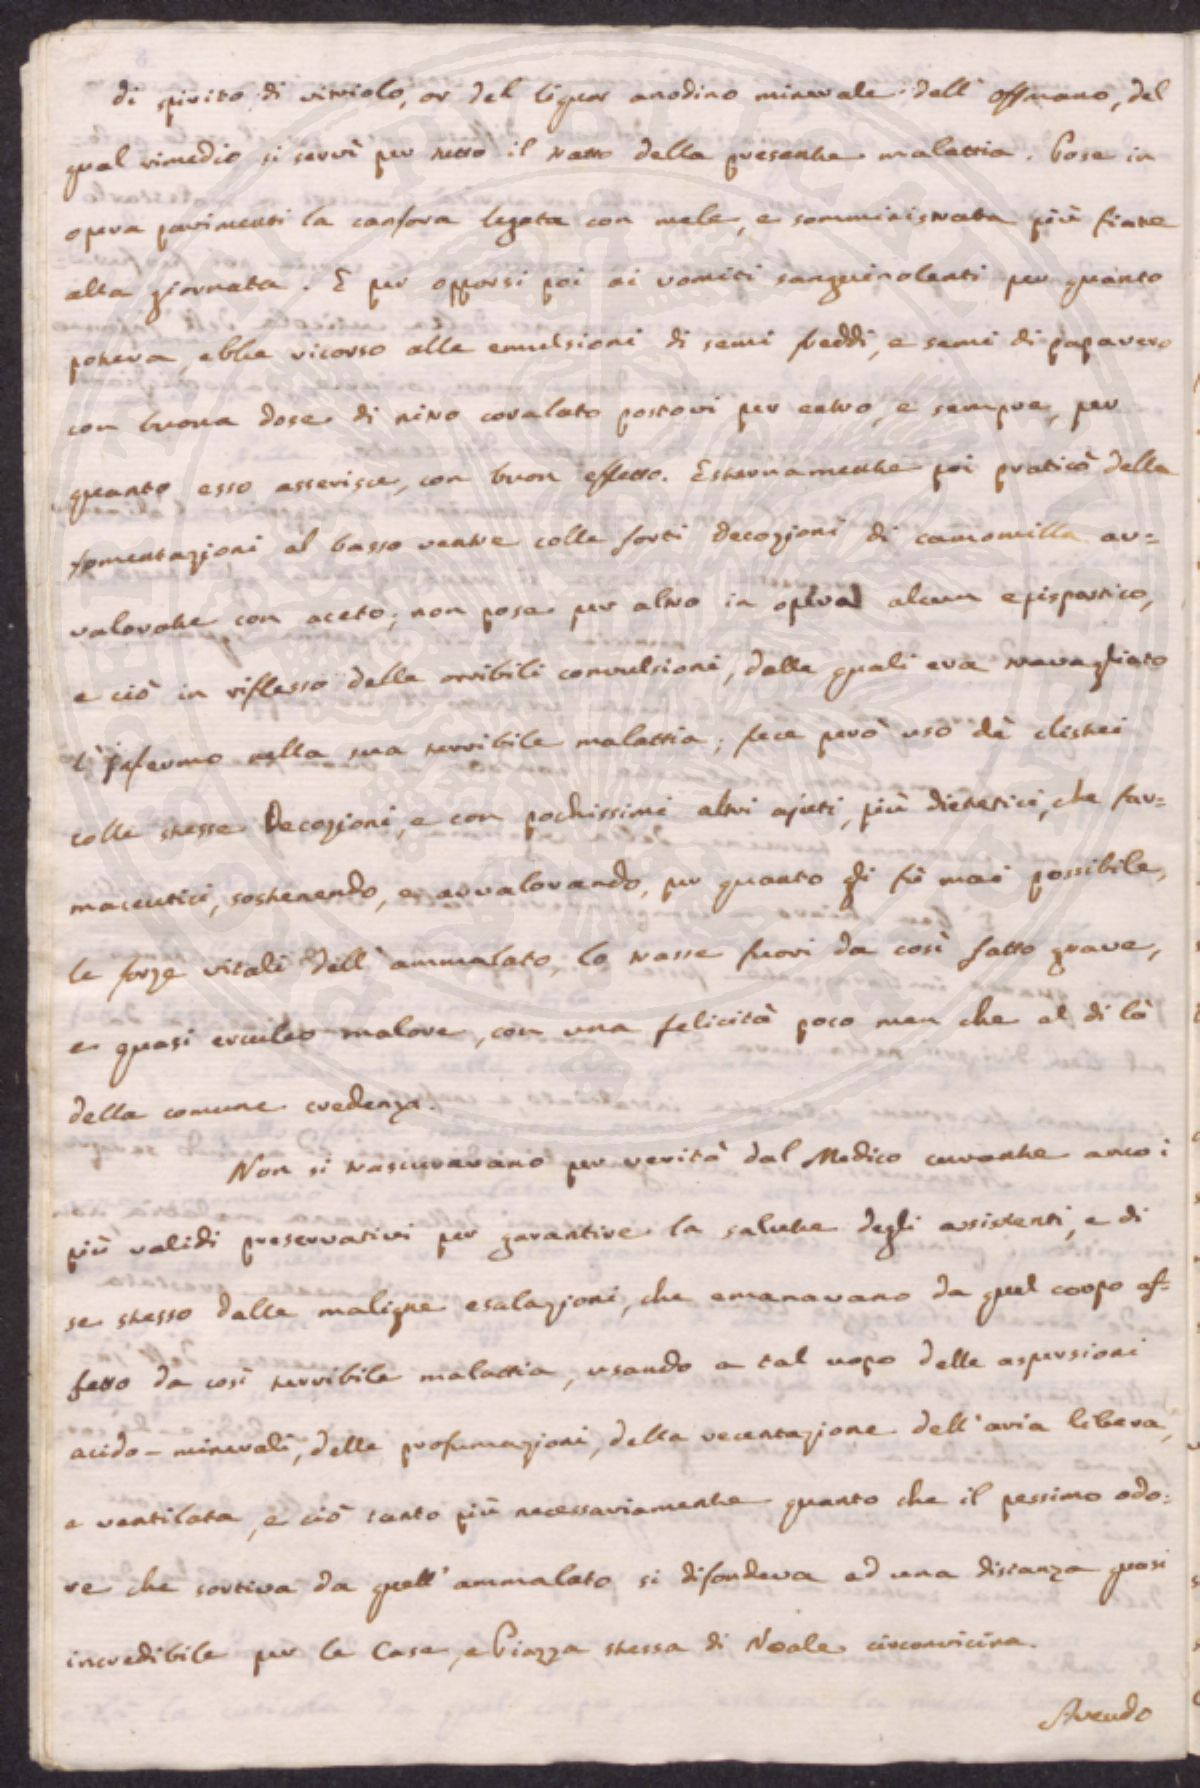 di spirito di vitriolo, or del liquor anodino minerale dell' Offmano, del
qual rimedio si servì per tutto il tratto della presente malattia. Pose in
opera parimenti la canfora legata con mele, e somministrata più fiate
alla giornata. E per opporsi poi ai vomiti sanguinolenti per quanto
poteva, ebbe ricorso alle emulsioni di semi freddi, e semi di papavero
con buona dose di nitro coralato postovi per entro, e sempre, per
quanto esso asserisce, con buon effetto. Esternamente poi praticò della
fomentazioni al basso ventre colle forti decozioni di camomilla av=
valorate con aceto; non pose per altro in opera alcun epispastico,
e ciò in riflesso delle orribili convulsioni, dalle quali era travagliato
l'infermo nella sua terribile malattia; fece però uso de clistei
colle stesse Decozioni, e con pochissimi altri ajuti, più dietetici, che far=
maceutici, sostenendo, e avvalorando, per quanto gli fù mai possibile,
le forze vitali dell'ammalato, lo trasse fuori da così fatto grave,
e quasi erculeo malore, con una felicità poco men che al di là
della comune credenza.
Non si trascuravano per verità dal Medico curante anco i
più validi preservativi per garantire la salute degli assistenti, e di
se stesso dalle maligne esalazioni, che emanavano da quel corpo af-
fetto da così terribile malattia, usando a tal uopo delle aspersioni
acido-minerali, delle profumazioni, della recentazione dell'aria libera,
e ventilata, e ciò tanto più necessariamente quanto che il pessimo odo=
re che sortiva da quell'ammalato si difondeva ad una distanza quasi
incredibile per le Case, e Piazza stessa di Noale circonvicina.
Avendo